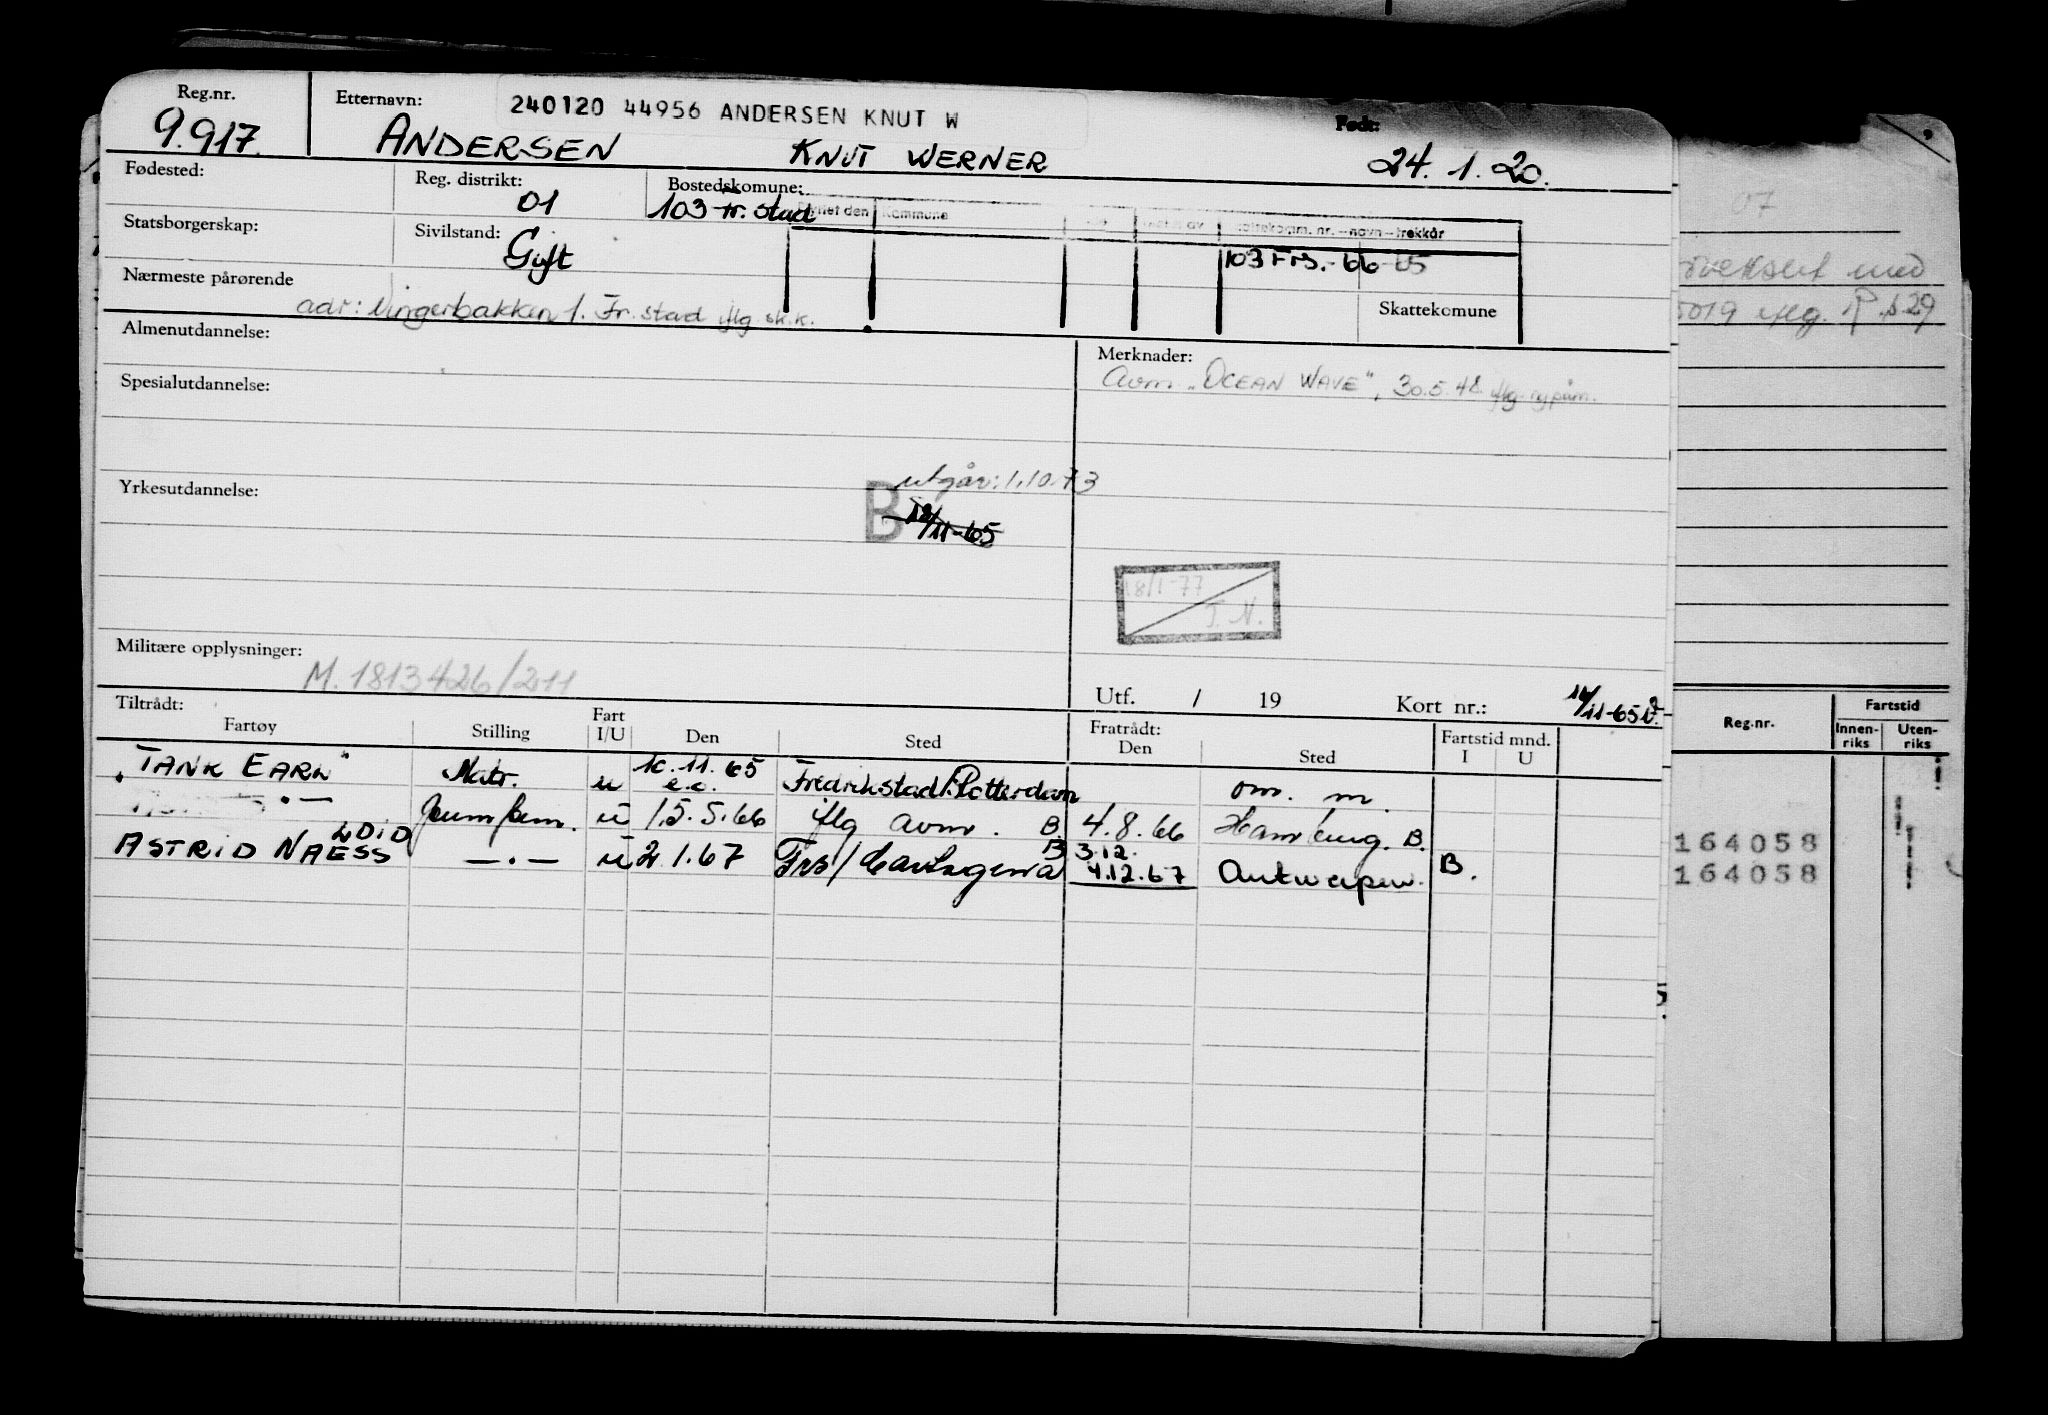 Reg.nr. Etternavn: 240120 44956 ANDERSEN KNUT W Født:
9.917. ANDERSEN KNUT WERNER 24.1.20.
Fødested: Reg. distrikt: 01 Bostedskomune: 103 Fr.stad
Flyttet den Kommune
Statsborgerskap: Sivilstand: Gift
Skattekomm. nr. – navn – trekkår
103 Frs. - 66 65
Nærmeste pårørende Skattekomune
adr: Vingerbakken 1. Fr.stad iflg. sk.k.
Almenutdannelse: Merknader:
Avm. „OCEAN WAVE", 30.5.48 iflg.
Spesialutdannelse:
utgår: 1.10.73
Yrkesutdannelse: B
18/11-65
18/1-77
T.N.
Militære opplysninger: M. 1813426/211
Utf. / 19 Kort nr.:
Tiltrådt: Fratrådt:
Fartøy Stilling Fart I/U Den Sted Den Sted Fartstid mnd. I U
„TANK EARL" Matr. u 10.11.65 e.o. Fredrikstad/Rotterdam om. m.
— . — Pumpem. u 15.5.66 iflg avm. B. 4.8.66 Hamburg. B.
ASTRID NAESS LDID — . — u 2.1.67 Frs/Cartagena B 3.12. 4.12.67 Antwerpen. B.
07
med
5019 iflg.
Reg.nr. Fartstid
Innen-riks Uten-riks
164058
164058